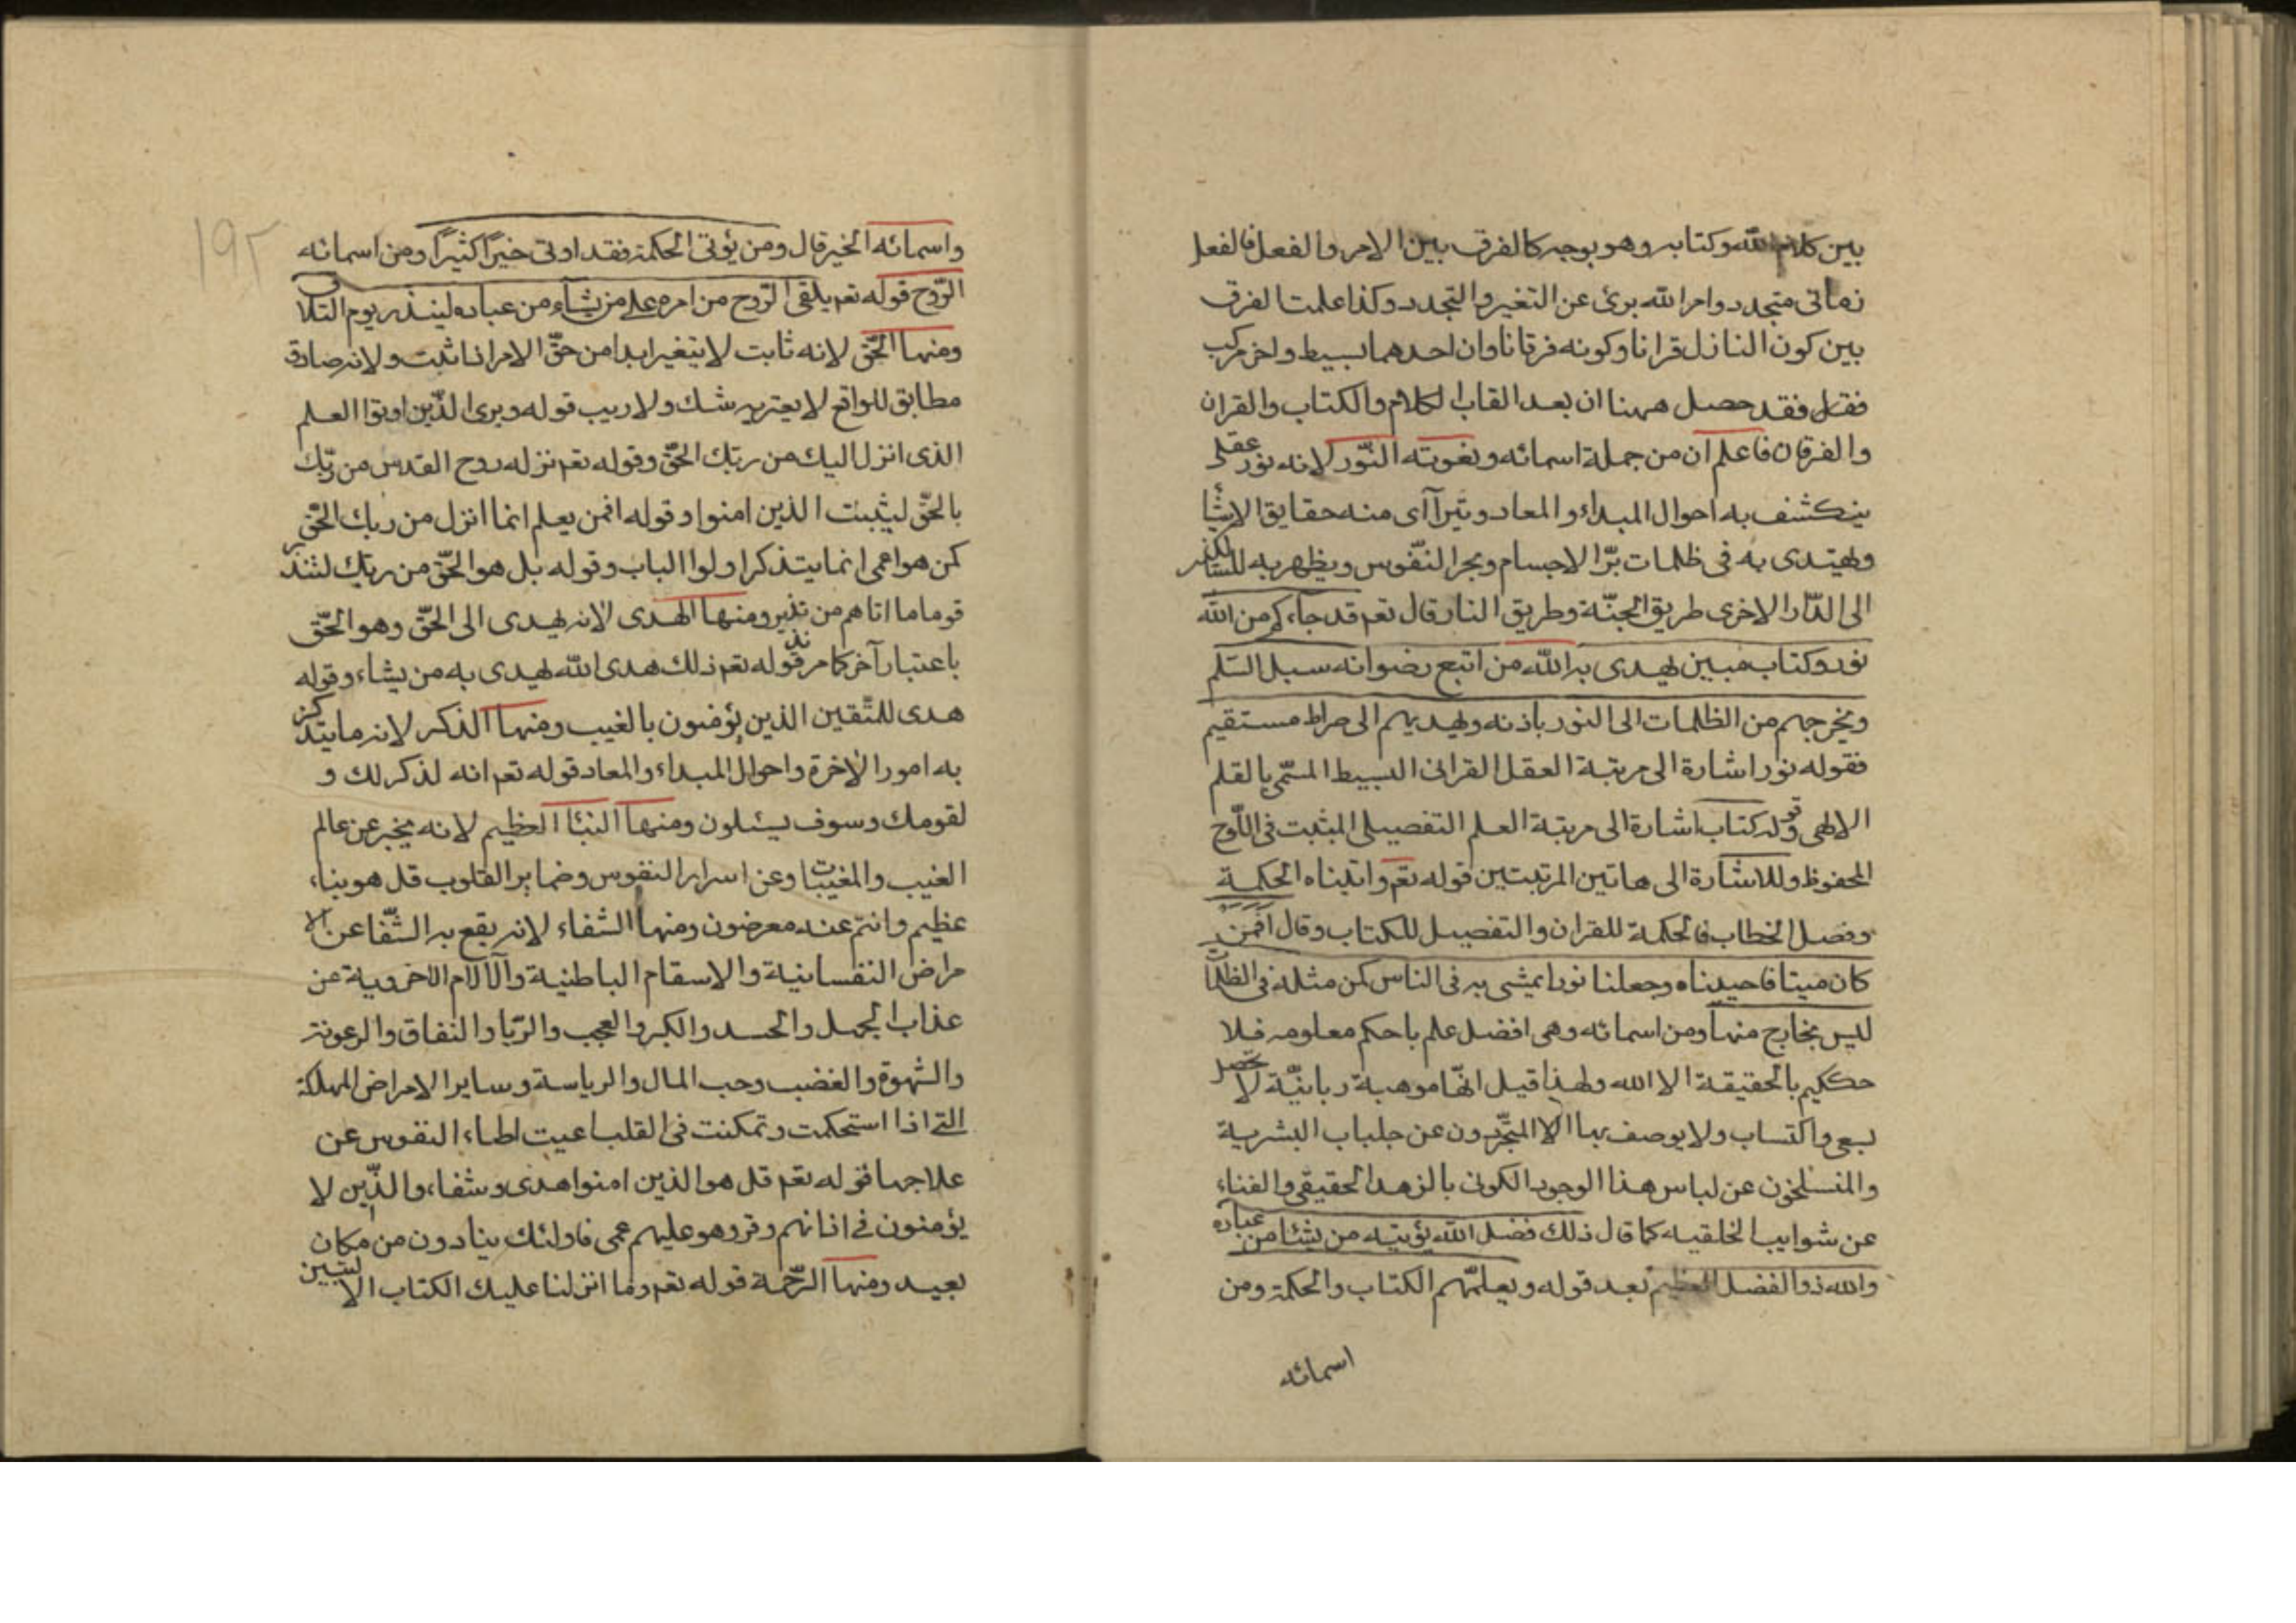 بين كلام الله وكتابه وهو بوجه كالفرق بين الامر والفعل فالفعل
زماني متجدد وامر الله برئ عن التغير والتجدد وكذا علمت الفرق
بين كون النازل قرانا وكونه فرقانا وان احدهما بسيط واخر مركب
فقد حصل ههنا ان بعد القاب الكلام والكتاب والقران
والفرقان فاعلم ان من جملة اسمائه ونعوته النّور لانه نور عقلي
ينكشف به احوال المبداء والمعاد ويتراآى منه حقايق الاشيا
ويهتدى به فى ظلمات برّ الاجسام وبحر النّفوس ويظهر به للسّائر
الى الدّار الاخرى طريق الجنّة وطريق النار قال تعم قد جاءكم من الله
نور وكتاب مبين يهدى به الله من اتبع رضوانه سبل السّلم
ويخرجهم من الظلمات الى النور باذنه ويهديهم الى صراط مستقيم
فقوله نور اشارة الى مرتبة العقل القرانى البسيط المسمّى بالقلم
الالهى وقوله كتاب اشارة الى مرتبة العلم التفصيلى المثبت فى اللّوح
المحفوظ وللاشارة الى هاتين المرتبتين قوله تعم واتيناه الحكمة
وفصل الخطاب فالحكمة للقران والتفصيل للكتاب وقال افمن
كان ميتا فاحييناه وجعلنا نورا يمشى به فى الناس كمن مثله فى الظلمات
ليس بخارج منها ومن اسمائه وهى افضل علم باحكم معلومه فلا
حكيم بالحقيقة الا الله ولهذا قيل انّها موهبة ربانيّة لا تحصل
بسعى واكتساب ولا يوصف بها الا المتجّردون عن جلباب البشرية
والمنسلخون عن لباس هذا الوجود الكونى بالزهد الحقيقى والفناء
عن شوايب الخلقيه كما قال ذلك فضل الله يؤتيه من يشاء من عباده
والله ذو الفضل العظيم بعد قوله ويعلّمهم الكتاب والحكمة ومن
اسمائه
١٩٢
واسمائه الخير قال ومن يؤتى الحكمة فقد اوتى خيرًا كثيرًا ومن اسمائه
الرّوح قوله تعم يلقى الرّوح من امره على من يشاء من عباده لينذر يوم التلا
ومنها الحّق لانه ثابت لا يتغير ابدا من حقّ الامر اذا ثبت ولانه صادق
مطابق للواقع لا يعتريه شك ولا ريب قوله ويرى الذّين اوتوا العلم
الذى انزل اليك من ربّك الحقّ وقوله تعم نزله روح القدس من ربّك
بالحقّ ليثبت الذين امنوا وقوله افمن يعلم انما انزل من ربك الحّق
كمن هو اعمى انما يتذكر اولوا الباب وقوله بل هو الحّق من ربّك لتنذر
قوما ما اتاهم من نذير ومنها الهدى لانه يهدى الى الحّق وهو الحّق
باعتبار آخر كما مر قوله تعم ذلك هدى الله يهدى به من يشاء وقوله
هدى للمتّقين الذين يؤمنون بالغيب ومنها الذكر لانه ما يتذكر
به امور الاخرة واحوال المبداء والمعاد قوله تعم انه لذكر لك و
لقومك وسوف يسئلون ومنها النبئا العظيم لانه يخبر عن عالم
الغيب والمغيبات وعن اسرار النفوس وضماير القلوب قل هو بناء
عظيم وانتم عنه معرضون ومنها الشفاء لانه يقع به الشّفا عن الا
مراض النفسانية والاسقام الباطنية والآلام الاخروية من
عذاب الجهل والحسد والكبر والعجب والرّيا والنفاق والرعونة
والشهوة والغضب وحب المال والرياسة وساير الامراض المهلكة
التى اذا استحكمت وتمكنت فى القلب اعيت اطباء النفوس عن
علاجها قوله تعم قل هو الذين امنوا هدى وشفاء والذّين لا
يؤمنون فى اذانهم وقر وهو عليهم عمى فاولئك ينادون من مكان
بعيد ومنها الرّحمة قوله تعم وما انزلنا عليك الكتاب الا لتبين